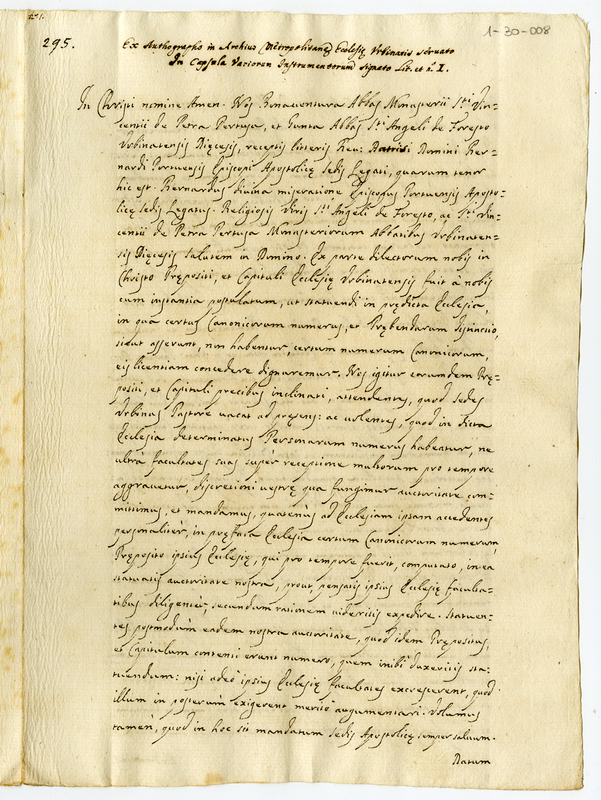 nº 1.
1-30-008
295.
Ex Authographo in Archivo Metropolitanę Ecclesię Urbinatis servato
In Capsula Variorum Instrumentorum signato Lit. et nº I.
In Christi nomine Amen. Nos Bonaventura Abbas Monasterii Sti Vin=
centii de Petra Pertusa, et Gunta Abbas Sti Angeli de Foresto
Urbinatensis Dięcesis, receptis litteris Reu: Domini Ber=
nardi Portuensis Episcopi Apostolicę Sedis Legati, quarum tenor
hic est. Bernardus divina miseratione Episcopus Portuensis Aposto=
licę sedis Legatus. Religiosis Viris Sti Angeli de Foresto, ac Sti Vin=
centii de Petra Pertusa Monasteriorum Abbatibus Urbinaten=
sis Dięcesis salutem in Domino. Ex parte dilectorum nobis in
Christo Prępositi, et Capituli Ecclesię Urbinatensis fuit a nobis
cum instantia postulatum, ut statuendi in prędicta Ecclesia,
in qua certus Canonicorum numerus, et Prębendarum distinctio,
sicut asserunt, non habentur, certum numerum Canonicorum,
eis licentiam concedere dignaremur. Nos igitur eorumdem Prę=
positi, et Capituli precibus inclinati, attendentes, quod sedes
Urbinas Pastore vacat ad pręsens: ac volentes, quod in dicta
Ecclesia determinatus Personarum numerus habeatur, ne
ultrà facultates suas super receptione multorum pro tempore
aggravetur, discretioni vestrę qua fungimur auctoritate com=
mittimus, et mandamus, quatenùs ad Ecclesiam ipsam accedentes
personalitèr, in pręfata Ecclesia certum Canonicorum numerum,
Pręposito ipsius Ecclesię, qui pro tempore fuerit, computato, in ea
statuatis auctoritate nostra, prout, pensatis ipsius Ecclesię faculta=
tibus diligenter, secundum rationem videritis expedire. Statuen=
tes postmodùm eadem nostra auctoritate, quod idem Prępositus,
et Capitulum contenti erunt numero, quem inibi duxeritis sta=
tuendum: nisi adeo ipsius Ecclesię facultates excrescerent, quod
illum in posterum exigerent meritò augmentari. Volumus
tamen, quod in hoc sit mandatum sedis Apostolicę semper salvum.
Datum